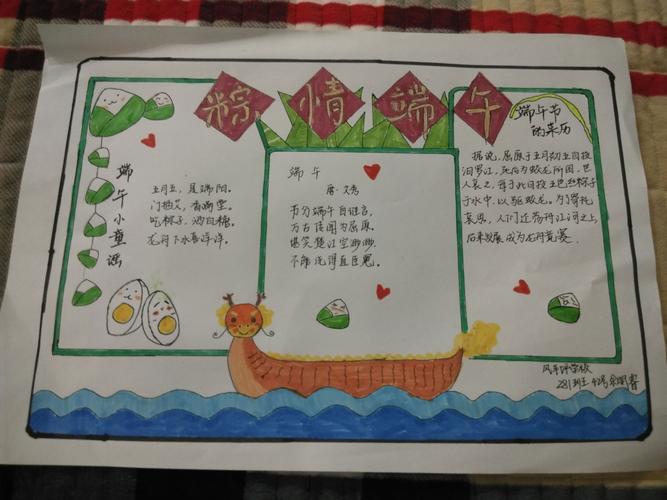 粽情端午
端午小童谣
五月五，是端阳。
门插艾，香满堂。
吃粽子，洒白糖。
龙舟下水喜洋洋。
端午
唐·文秀
节分端午自谁言，
万古传闻为屈原，
堪笑楚江空渺渺，
不能洗得直臣冤。
端午节
的来历
据说，屈原于五月初五自投
汨罗江，死后为蛟龙所困，世
人哀之，每于此日投五色丝粽子
于水中，以驱蛟龙。为了寄托
哀思，人们近荡舟江河之上，
后来发展成为龙舟竞赛.
281班 42号